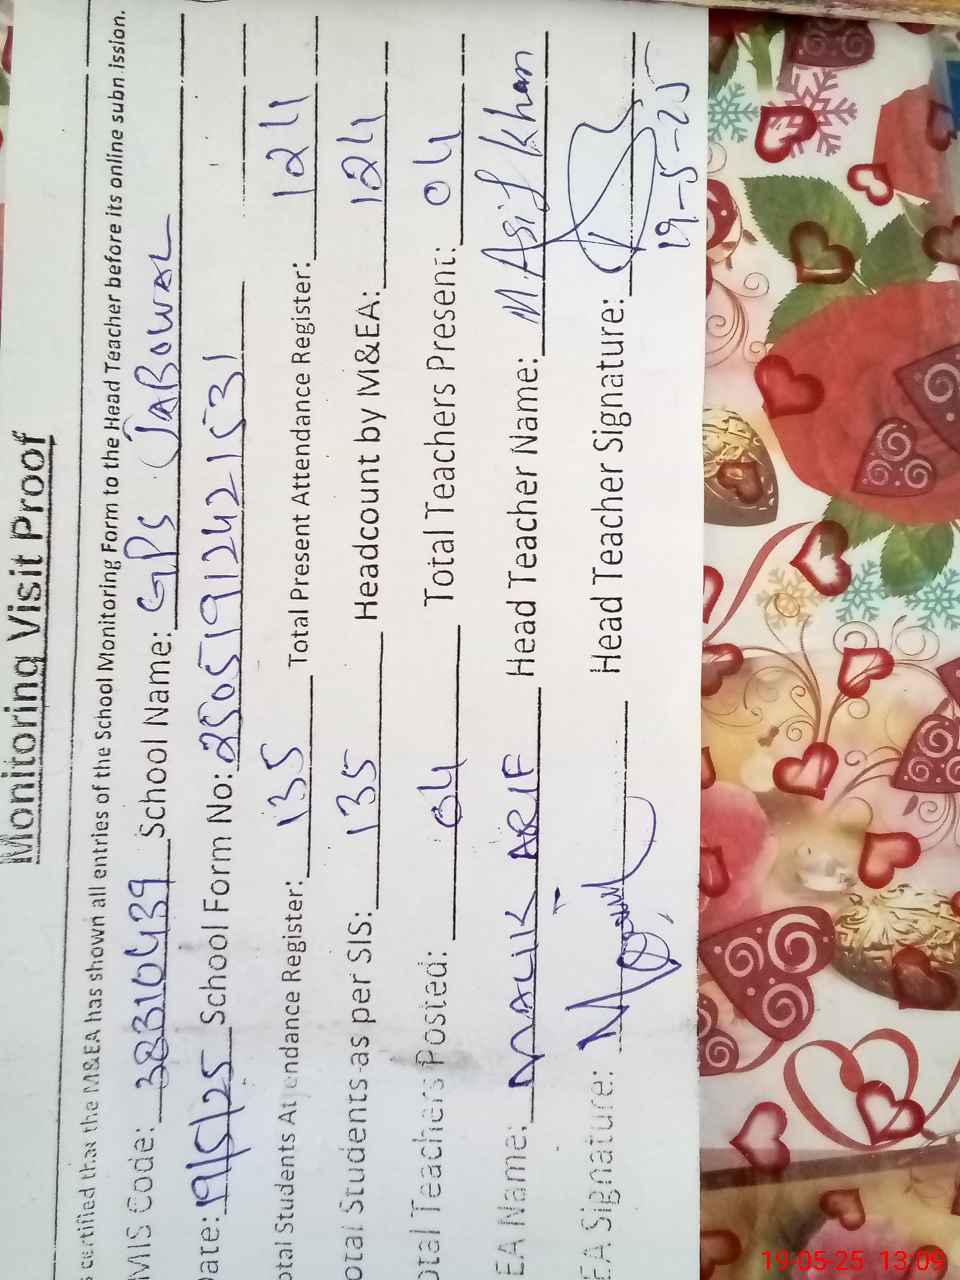 Monitoring Visit Proof
certified that the M&EA has shown all entries of the School Monitoring Form to the Head Teacher before its online submission.
MIS Code: 38310439 School Name: GPS JABOWAL
Date: 19/5/25 School Form No: 25051912421531
otal Students Attendance Register: 135 Total Present Attendance Register: 124
otal Students as per SIS: 135 Headcount by M&EA: 124
otal Teachers Posted: 04 Total Teachers Present: 04
EA Name: MALIK ARIF Head Teacher Name: M. Asif Khan
EA Signature: Head Teacher Signature:
19-5-25
19-05-25 13:09